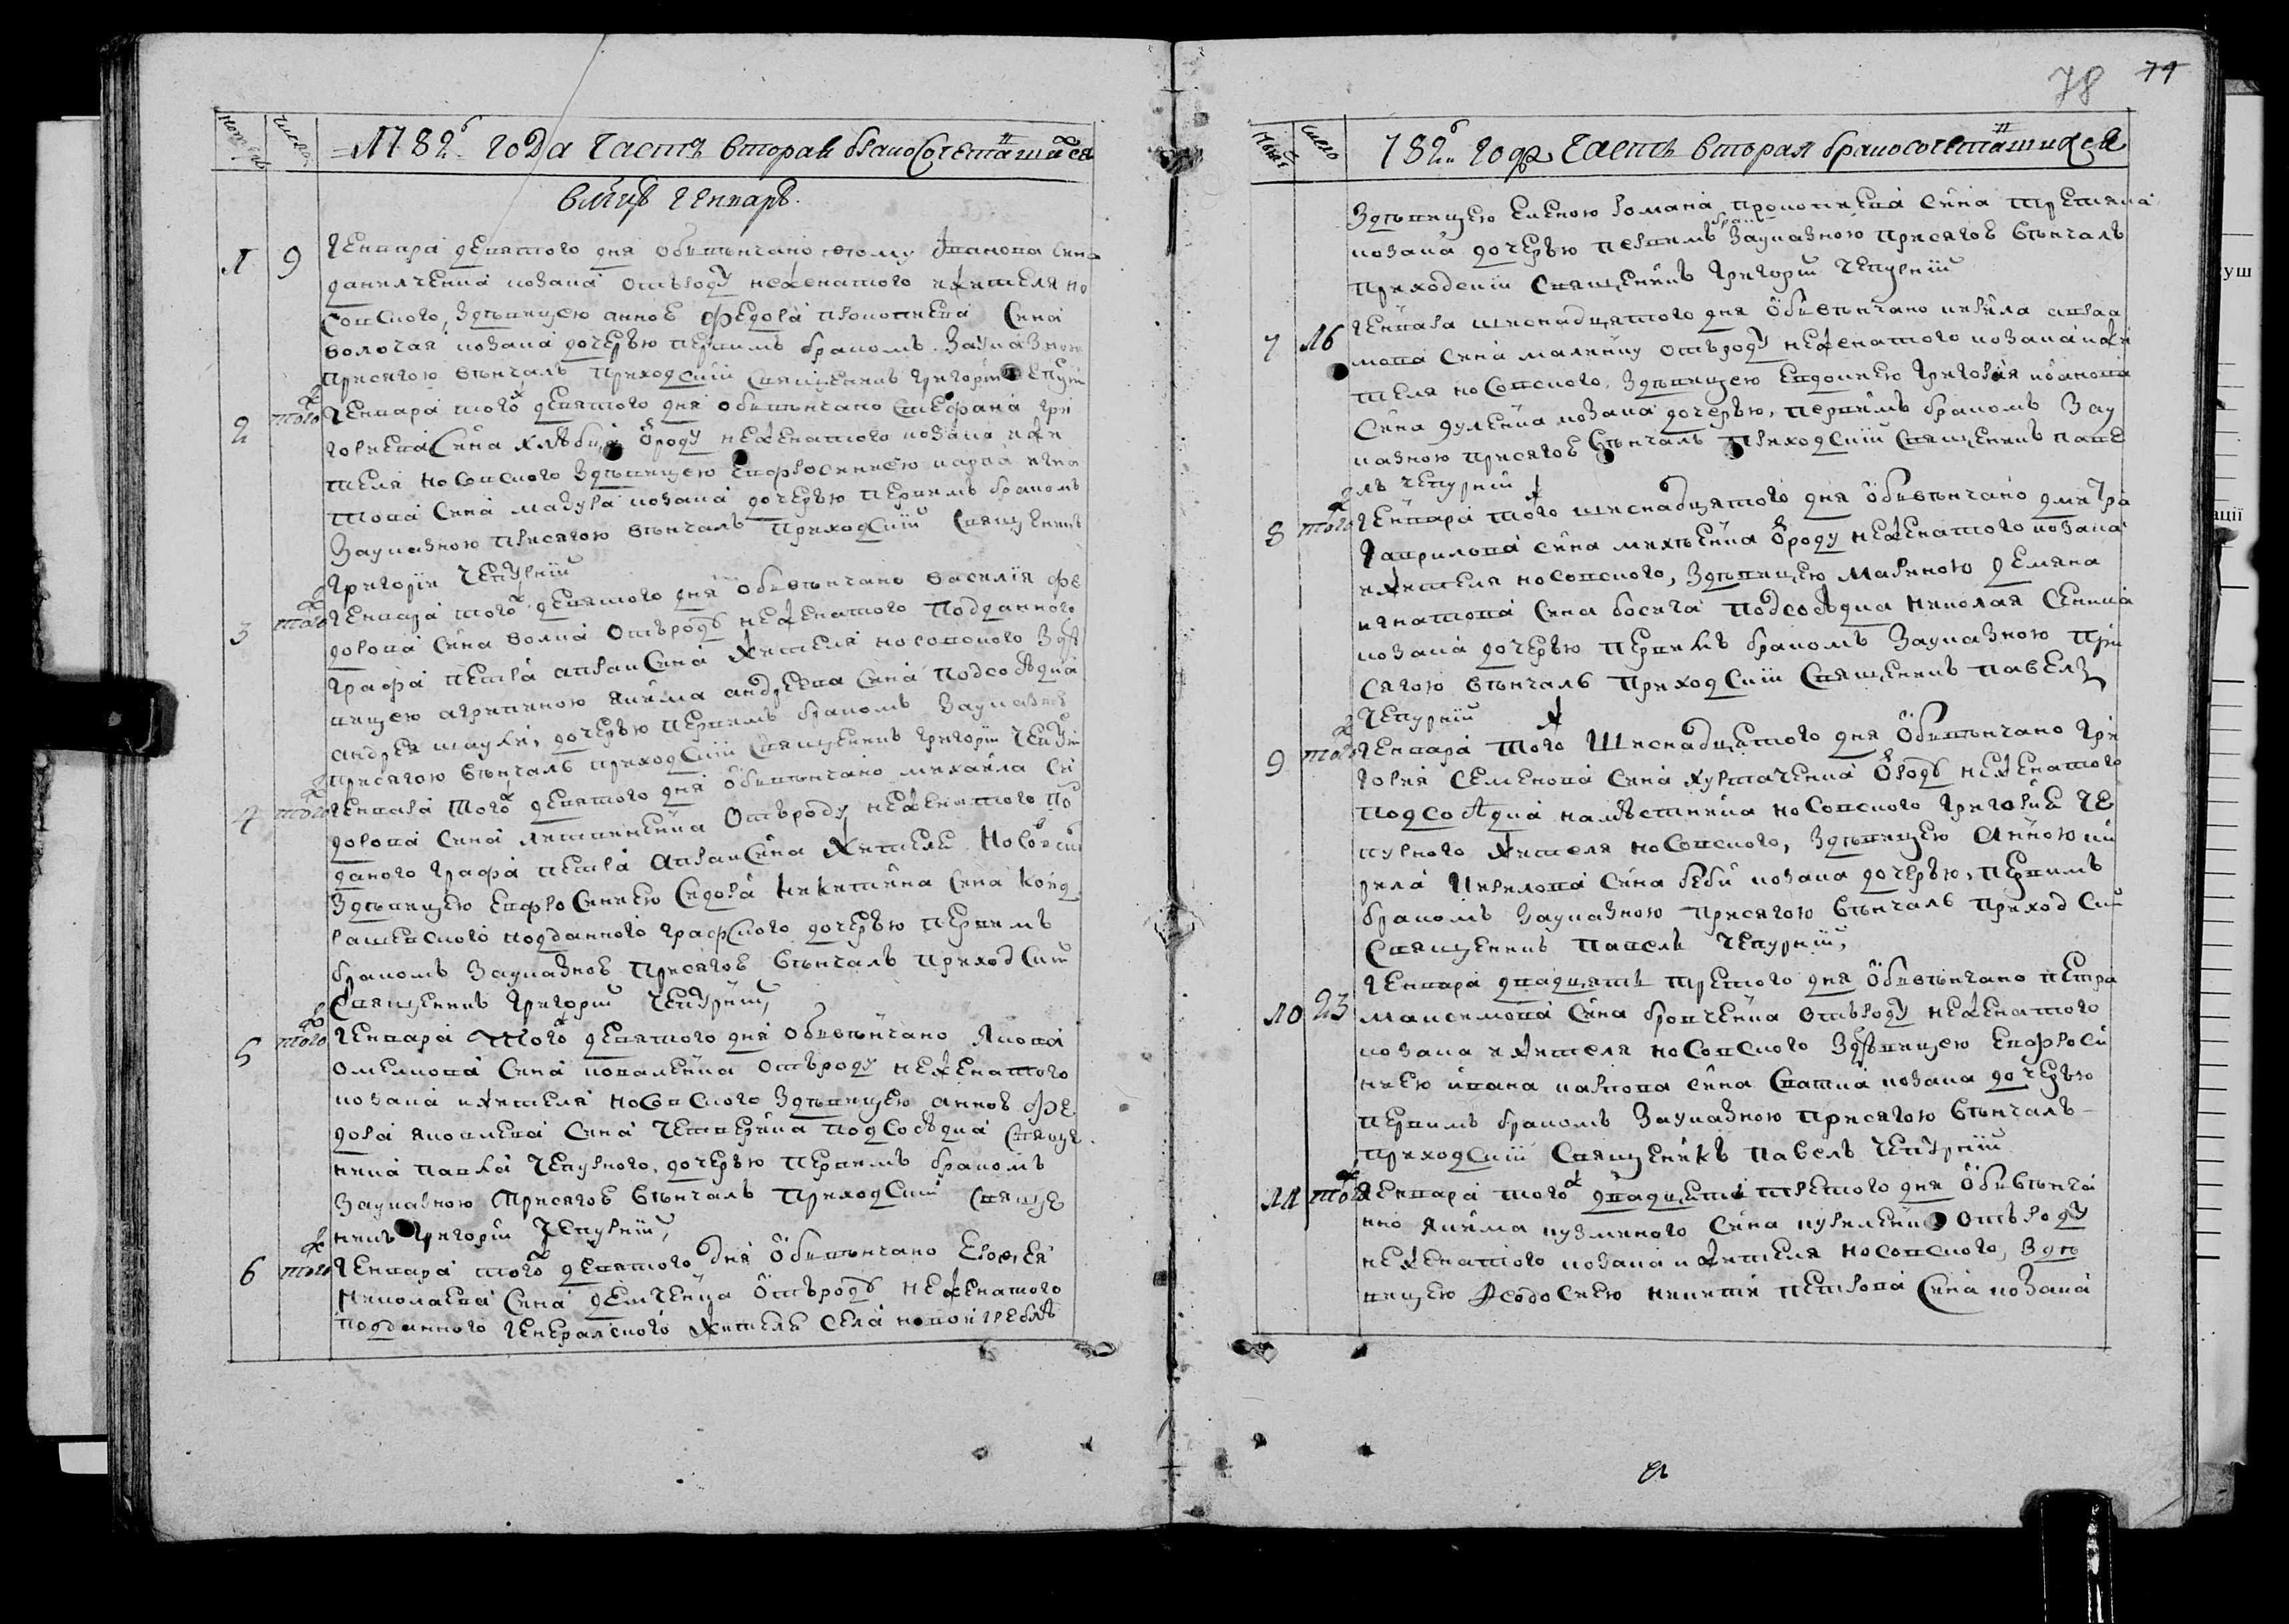 78 74
номеръ число =1782 года часть вторая браносочетавшихся
вмцѣ генварѣ.
1 9 Генвара девятого дня обвѣнчано юстому Іванова сина
данилченка козака отъроду нежонатого ижителя но
совского, здѣвицею анною федора прокопиева сина
волочая козака дочерью первимъ бракомъ. Зауказною
присягою вѣнчалъ приходский священикъ григорий Чепурн
2 того Генвара того девятого дня обвѣнчано стефана гри
гориева сина хлѣбика ѿроду нежонатого козака ижи
теля носовского здѣвицею евфросиниею карпа игна
това сина мазура козака дочерью первимъ бракомъ
Зауказною присягою вѣнчалъ приходский священикъ
григорий Чепурний
3 того Генвара того девятого дня обвѣнчано василия фе
дорова сина вовка отъроду нежонатого подданного
графа петра апраксина жителя носовского здѣ
вицею агрипиною якима андреева сина подсосѣдка
андрея дочерью первимъ бракомъ зауказною
присягою вѣнчалъ приходский священикъ григорий Чепурн
4 того Генвара того девятого дня обвѣнчано михаила си
дорова сина отъроду нежонатого по
даного графа петра апраксина жителя носовск
здѣвицею евфросиниею сидора никитина сина конд
рашевского подданного графского дочерью первимъ
бракомъ зауказною присягою вѣнчалъ приходский
священикъ григорий Чепурний,
5 того Генвара того девятого дня обвѣнчано якова
омелкова сина коваленка отъроду нежонатого
козака ижителя носовского здѣвицею анною фе
дора яковлева сина четверика подсосѣдка свяще
ника павла чепурного, дочерью первимъ бракомъ
Зауказною присягою вѣнчалъ приходский свяще
никъ григорий Чепурний,
6 того Генвара того девятого дня обвѣнчано Евфиея
николаева сина демченка отъроду нежонатого
подданного генералского жителя села новой греблѣ
номеръ число 1782 года часть вторая браносочетавшихся
здѣвицею еленою романа прокопиева сина третяка
козака дочерью первимъ бракомъ зауказною присягою вѣнчалъ
приходский священикъ григорий Чепурний
7 16 Генвара шеснадцятого дня обвѣнчано кирила авраа
мова сина малѣику отъроду нежонатого козака ижи
теля носовского, здѣвицею евдокиею григория иванова
сина дуленка козака дочерью, первимъ бракомъ зау
казною присягою вѣнчалъ приходский священикъ паве
лъ чепурний
8 того Генвара того шеснадцятого дня обвѣнчано дмитра
гаврилова сина михѣенка ѿроду нежонатого козака
ижителя носовского, здѣвицею мариною демяна
игнатова сина босяга подсосѣдка николая сенька
козака дочерью первимъ бракомъ зауказною при
сягою вѣнчалъ приходский священикъ павелъ
Чепурний
9 того Генвара того шеснадцятого дня обвѣнчано гри
гория семенова сина ѿроду нежонатого
подсосѣдка намѣстника носовского григория че
пурного жителя носовского, здѣвицею анною ки
рила кирилова сина беби козака дочерью, первимъ
бракомъ зауказною присягою вѣнчалъ приходский
священикъ павелъ Чепурний,
10 23 Генвара двадцять третого дня обвѣнчано петра
максимова сина бровченка отъроду нежонатого
козака ижителя носовского здѣвицею евфроси
ниею ивана карпова сина сватка козака дочерью
первимъ бракомъ зауказною присягою вѣнчалъ
приходский священикъ павелъ чепурний
11 того Генвара того двадцять третого дня обвѣнча
но якима кузминого сина куриленка отъроду
нежонатого козака ижителя носовского, здѣ
вицею феодосиею никити петрова сина козака